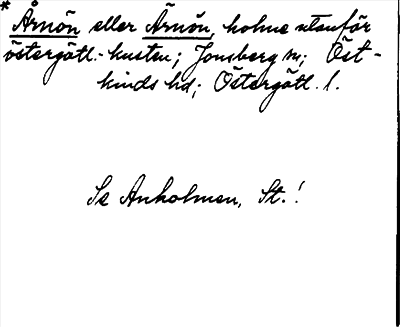 * Årnön eller Ärnön, holme utanför
östergötl.-kusten; Jonsberg sn; Öst-
kinds hd; Östergötl. l.
Se Anholmen, St.!